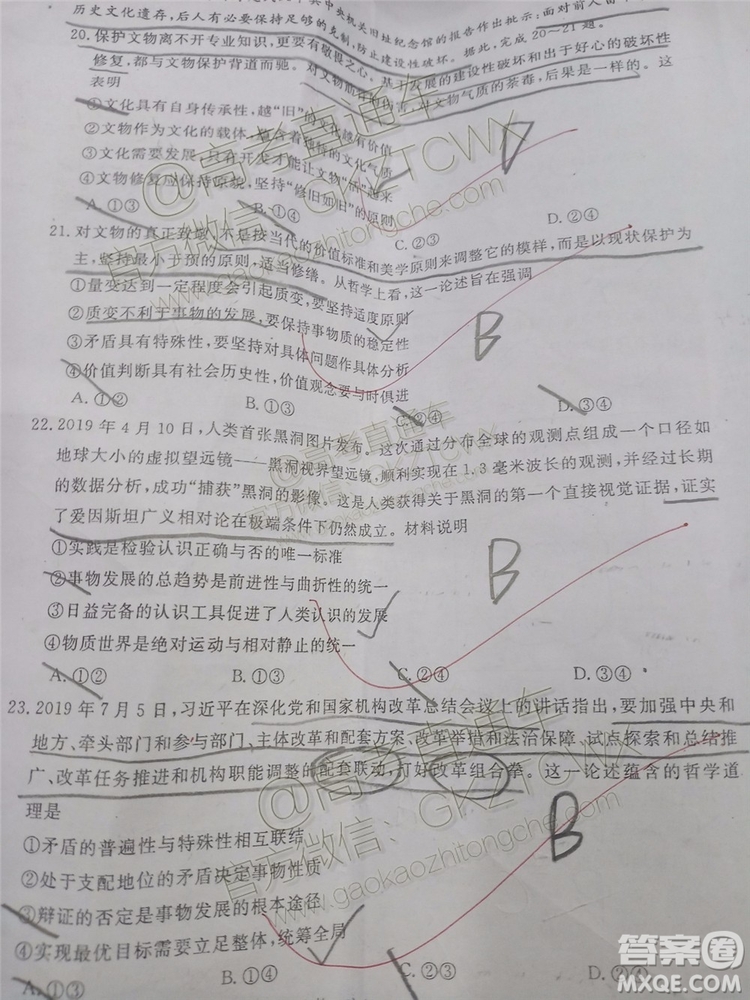 历史文化遗存,后人有必要保持足够的
中央机关旧址纪念馆的报告作出批示:面对前人留下
防止建设性破坏。据此,完成20~21题。
20.保护文物离不开专业知识,更要有敬畏之心。基于发展的建设性破坏和出于好心的破坏性
修复,都与文物保护背道而驰。对文物气质的荼毒,后果是一样的。这
表明
①文化具有自身传承性,越“旧”的文化越有价值
②文物作为文化的载体,蕴含着独特的文化气质
③文化需要发展,只有开发才能让文物“活”起来
④文物修复应保持原貌,坚持“修旧如旧”的原则
A.①③
B.①④
C.②③
D.②④
D
21.对文物的真正致敬,不是按当代的价值标准和美学原则来调整它的模样,而是以现状保护为
主,坚持最小干预的原则,适当修缮。从哲学上看,这一论述旨在强调
①量变达到一定程度会引起质变,要坚持适度原则
②质变不利于事物的发展,要保持事物质的稳定性
③矛盾具有特殊性,要坚持对具体问题作具体分析
④价值判断具有社会历史性,价值观念要与时俱进
A.①②
B.①③
C.②④
D.③④
B
22.2019年4月10日,人类首张黑洞图片发布。这次通过分布全球的观测点组成一个口径如
地球大小的虚拟望远镜——黑洞视界望远镜,顺利实现在1.3毫米波长的观测,并经过长期
的数据分析,成功“捕获”黑洞的影像。这是人类获得关于黑洞的第一个直接视觉证据,证实
了爱因斯坦广义相对论在极端条件下仍然成立。材料说明
①实践是检验认识正确与否的唯一标准
②事物发展的总趋势是前进性与曲折性的统一
③日益完备的认识工具促进了人类认识的发展
④物质世界是绝对运动与相对静止的统一
A.①②
B.①③
C.②④
D.③④
B
23.2019年7月5日,习近平在深化党和国家机构改革总结会议上的讲话指出,要加强中央和
地方、牵头部门和参与部门、主体改革和配套方案、改革举措和法治保障、试点探索和总结推
广、改革任务推进和机构职能调整的配套联动,打好改革组合拳。这一论述蕴含的哲学道
理是
①矛盾的普遍性与特殊性相互联结
②处于支配地位的矛盾决定事物性质
③辩证的否定是事物发展的根本途径
④实现最优目标需要立足整体,统筹全局
A.①③
B.①④
C.②③
D.②④
B
@高考直通车
官方微信:GKZTCWX
www.gaokaozhitongche.com
答案圈
MXQE.COM